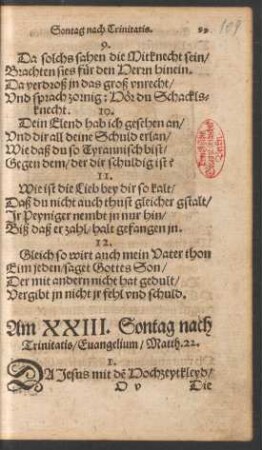 Sontag nach Trinitatis. 99
109
9.
Da solchs sahen die Mitknecht sein/
Brachten sies für den Herrn hinein.
Da verdroß jn das groß vnrecht/
Vnd sprach zornig: Hör du Schackls-
knecht.
10.
Dein Elend hab ich gesehen an/
Vnd dir all deine Schuld erlan/
Wie daß du so Tyrannisch bist/
Gegen dem/ der dir schuldig ist?
11.
Wie ist die Lieb bey dir so kalt/
Daß du nicht auch thust gleicher gstalt/
Ir Peyniger nembt jn nur hin/
Biß daß er zahl/ halt gefangen jn.
12.
Gleich so wirt auch mein Vater thon
Eim jeden/ saget Gottes Son/
Der mit andern nicht hat gedult/
Vergibt jn nicht jr fehl vnd schuld.
Am XXIII. Sontag nach
Trinitatis/ Euangelium/ Matth. 22.
1.
DA Jesus mit dẽ Hochzeytkleyd/
O v Die